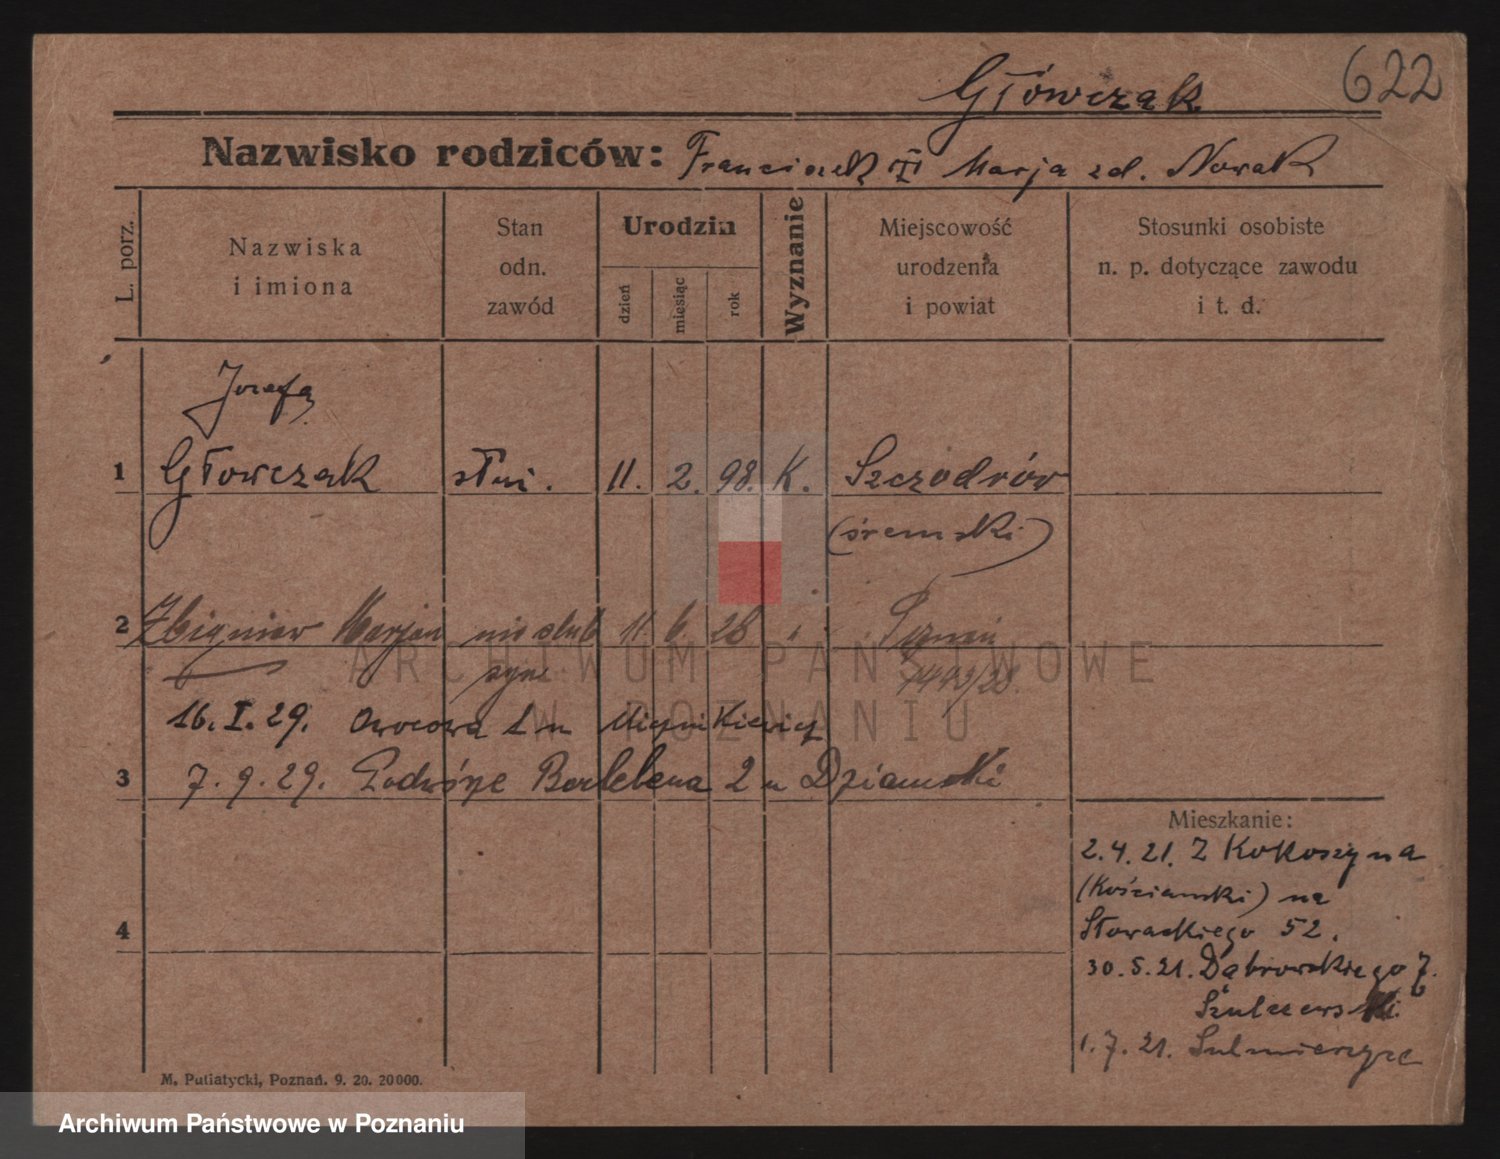 Główczak
622
Nazwisko rodziców: Franciszek Marja zd. Nowak
L. porz.
Nazwiska
i imiona
Stan
odn.
zawód
Urodzin
dzień
miesiąc
rok
Wyznanie
Miejscowość
urodzenia
i powiat
Stosunki osobiste
n. p. dotyczące zawodu
i t. d.
Józefa
1 Głowczak służ. 11. 2. 98. K. Szczodrów
(śremski)
2 Zbigniew Marjan nieślub 11. 6. 28 Poznań
syn
16. I. 29. Owocowa 1 u
3 7. 9. 29. Podwórze Bartlebena 2 u Dziamski
4
Mieszkanie:
2.4.21. Z Kokoszyna
(Kościański) na
Słowackiego 52.
30.5.21. Dąbrowskiego 7.
Szulczewski.
1.7.21. Sulmierzyce
M. Putiatycki, Poznań. 9. 20. 20000.
ARCHIWUM PAŃSTWOWE
W POZNANIU
Archiwum Państwowe w Poznaniu